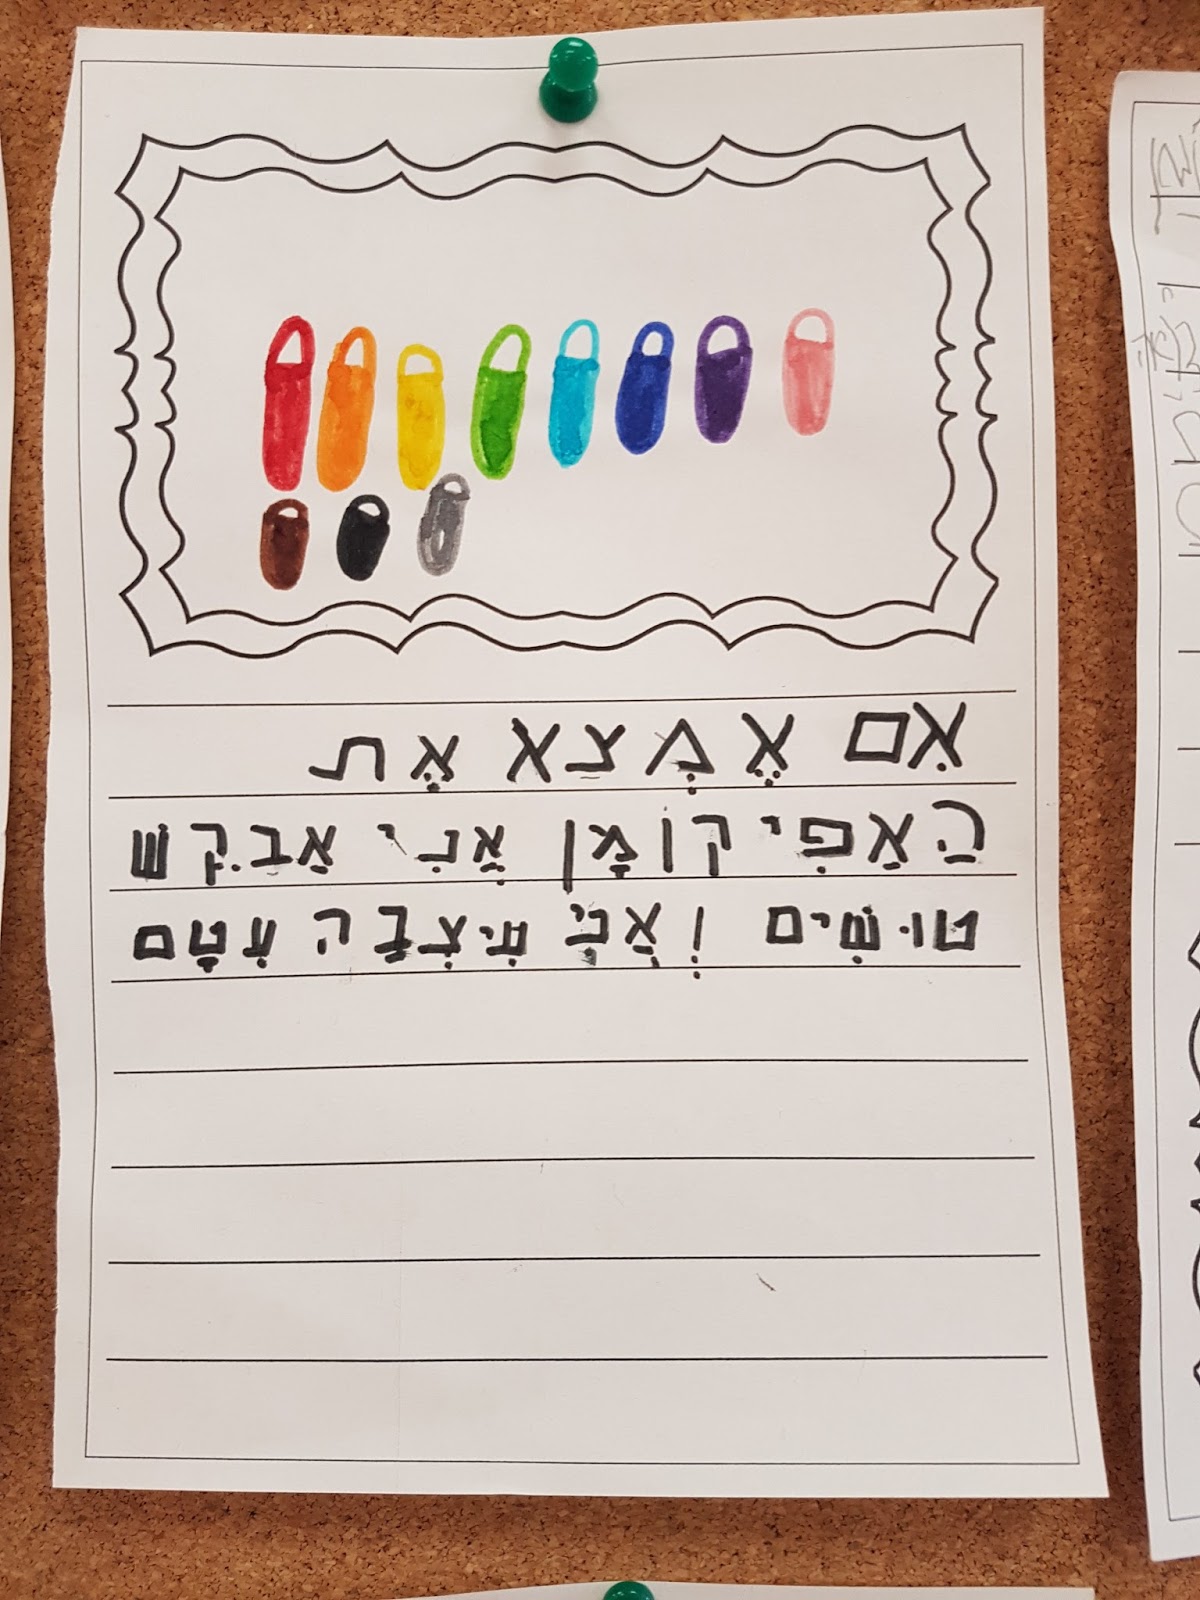 אִם אֶמְצַא אֶת
הַאַפִּיקוֹמָן אֲנִי אַבַקֵּשׁ
טוּשִׁים וְאֲנִי עִיצְבַּה עִטָם